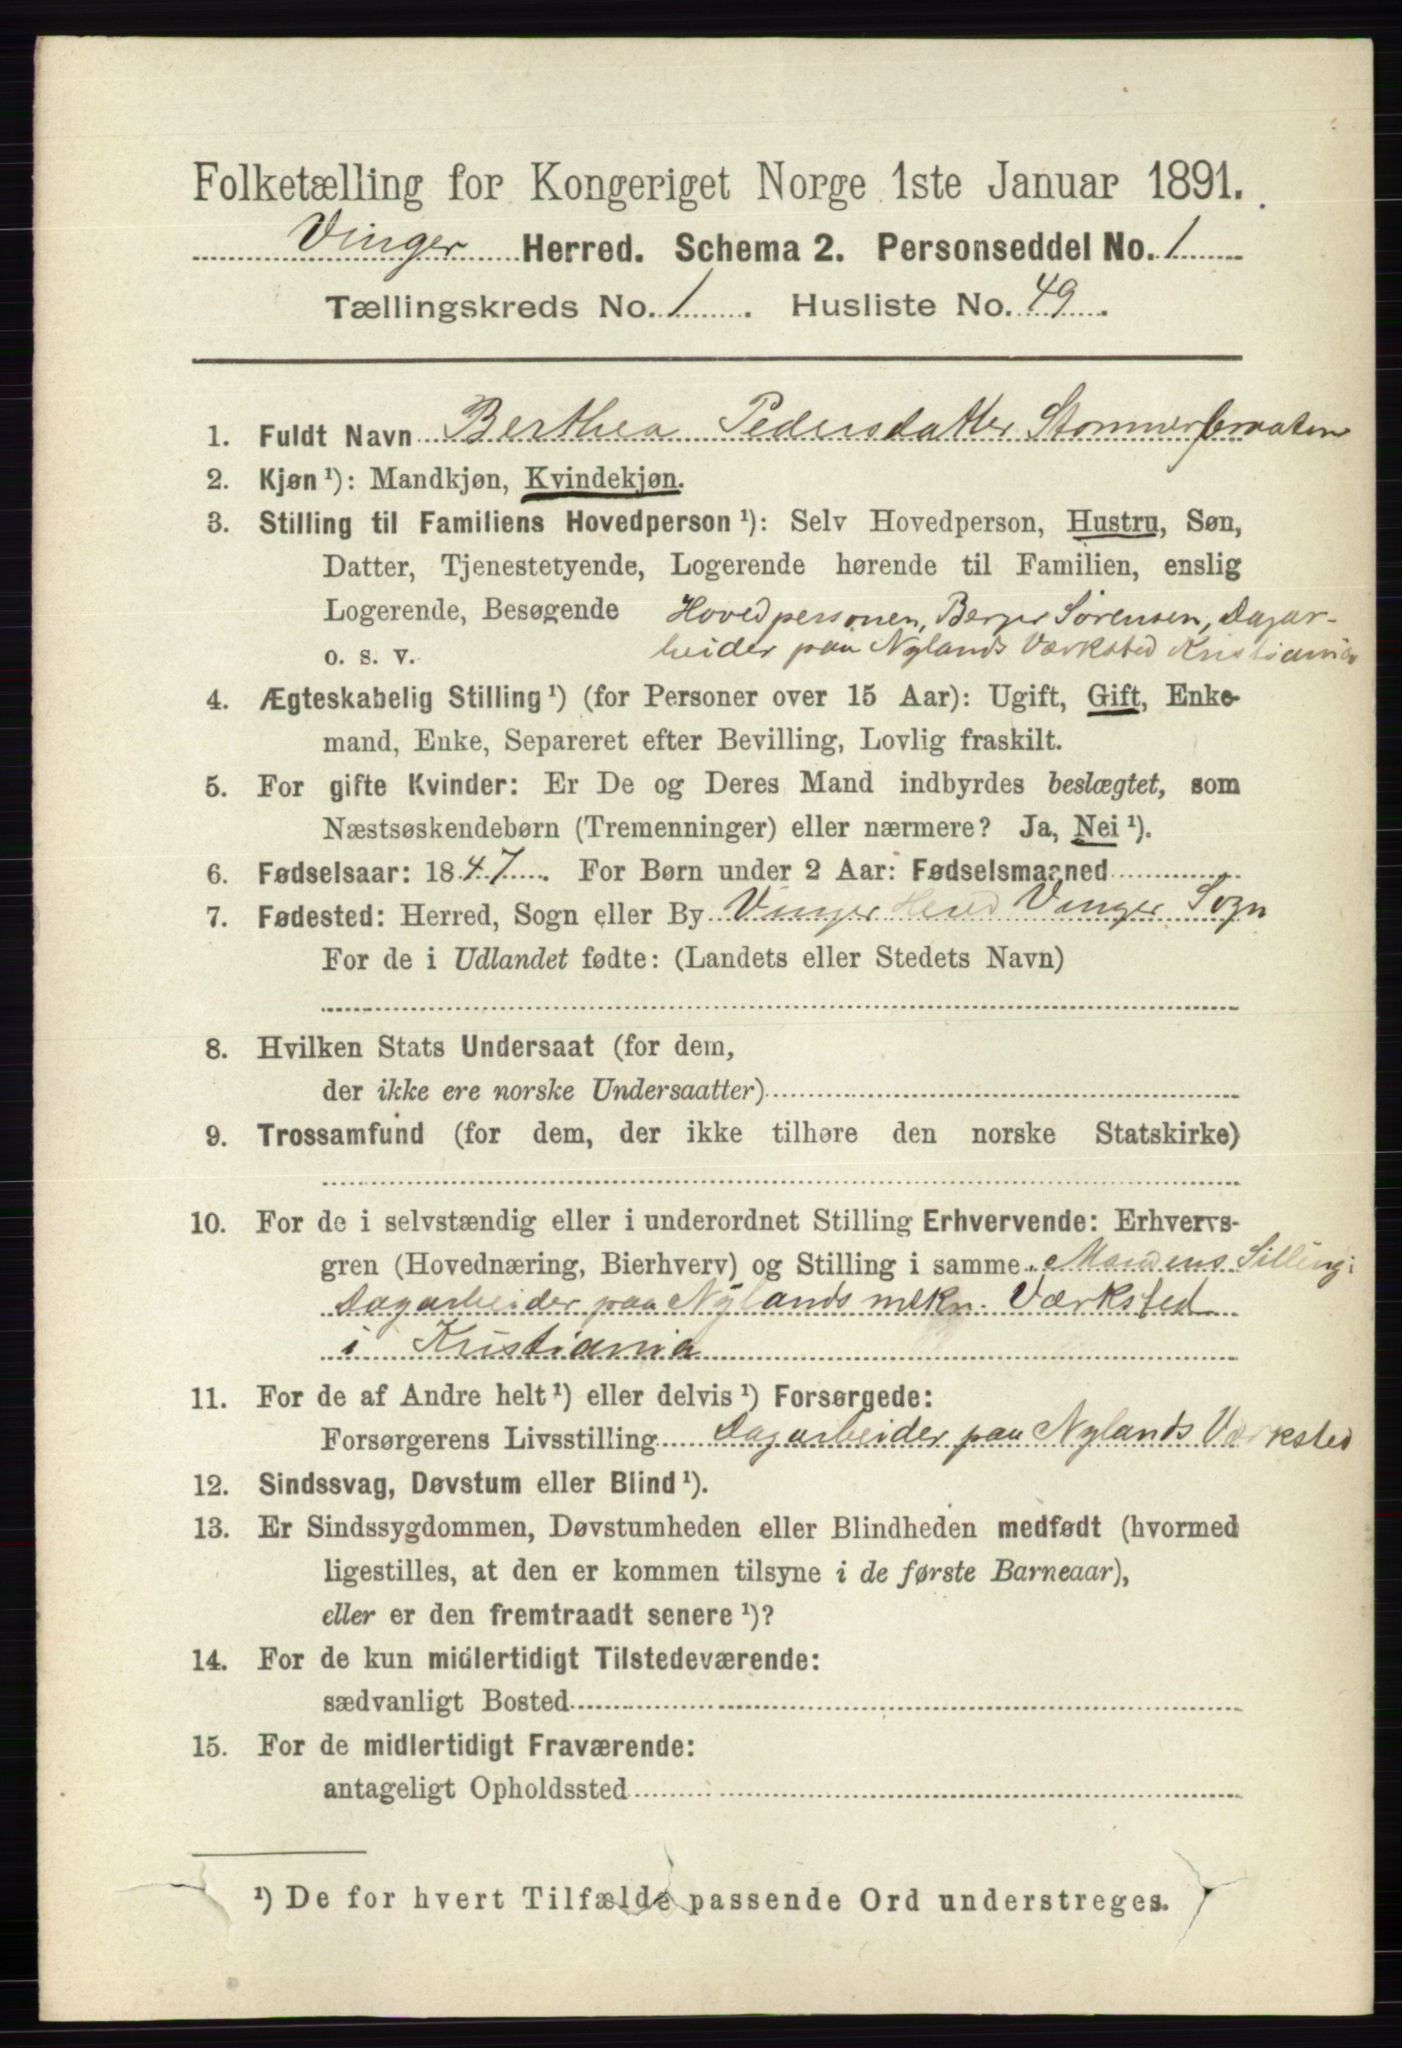 Folketælling for Kongeriget Norge 1ste Januar 1891.
Vinger Herred. Schema 2. Personseddel No. 1
Tællingskreds No. 1. Husliste No. 49.
1. Fuldt Navn Berthea Pedersdatter
2. Kjøn ¹): Mandkjøn, Kvindekjøn.
3. Stilling til Familiens Hovedperson ¹): Selv Hovedperson, Hustru, Søn,
Datter, Tjenestetyende, Logerende hørende til Familien, enslig
Logerende, Besøgende Hovedpersonen, Berger Sørensen, Dagar-
o. s. v. beider paa Nylands Værksted Kristiania
4. Ægteskabelig Stilling ¹) (for Personer over 15 Aar): Ugift, Gift, Enke-
mand, Enke, Separeret efter Bevilling, Lovlig fraskilt.
5. For gifte Kvinder: Er De og Deres Mand indbyrdes beslægtet, som
Næstsøskendebørn (Tremenninger) eller nærmere? Ja, Nei ¹).
6. Fødselsaar: 1847. For Børn under 2 Aar: Fødselsmaaned
7. Fødested: Herred, Sogn eller By Vinger Herred Vinger Sogn
For de i Udlandet fødte: (Landets eller Stedets Navn)
8. Hvilken Stats Undersaat (for dem,
der ikke ere norske Undersaatter)
9. Trossamfund (for dem, der ikke tilhøre den norske Statskirke)
10. For de i selvstændig eller i underordnet Stilling Erhvervende: Erhvervs-
gren (Hovednæring, Bierhverv) og Stilling i samme Mandens Silling:
Dagarbeider paa Nylands mekn. Værksted
i Kristiania
11. For de af Andre helt ¹) eller delvis ¹) Forsørgede:
Forsørgerens Livsstilling Dagarbeider paa Nylands Værksted
12. Sindssvag, Døvstum eller Blind ¹).
13. Er Sindssygdommen, Døvstumheden eller Blindheden medfødt (hvormed
ligestilles, at den er kommen tilsyne i de første Barneaar),
eller er den fremtraadt senere ¹)?
14. For de kun midlertidigt Tilstedeværende:
sædvanligt Bosted
15. For de midlertidigt Fraværende:
antageligt Opholdssted
¹) De for hvert Tilfælde passende Ord understreges.